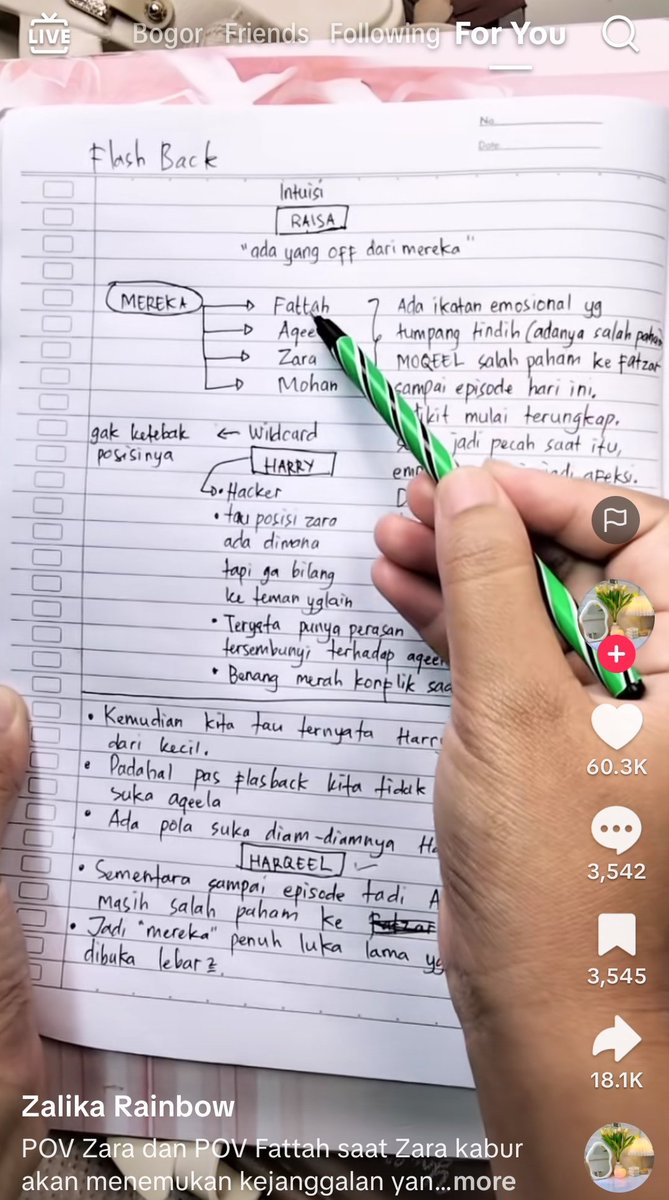 LIVE
Bogor Friends Following For You
No.
Date.
Flash Back
Intuisi
RAISA
"ada yang off dari mereka"
MEREKA
Fattah
Aqee
Zara
Mohan
Ada ikatan emosional yg
tumpang tindih (adanya salah paham
MOQEEL salah paham ke Fatzar
sampai episode hari ini.
mulai terungkap.
jadi pecah saat itu,
afeksi.
gak ketebak ← Wildcard
posisinya
HARRY
• Hacker
• tau posisi zara
ada dimana
tapi ga bilang
ke teman yglain
• Teryata punya perasan
tersembunyi terhadap aqee
• Benang merah konplik saa
• Kemudian kita tau ternyata Harr
dari kecil.
• Padahal pas flasback kita tidak
suka aqeela
• Ada pola suka diam-diamnya Ha
HARQEEL
• Sementara sampai episode tadi A
Masih salah paham ke Fatzar
• Jadi "mereka" penuh luka lama yg
dibuka lebar2.
60.3K
3,542
3,545
18.1K
Zalika Rainbow
POV Zara dan POV Fattah saat Zara kabur
akan menemukan kejanggalan yan...more